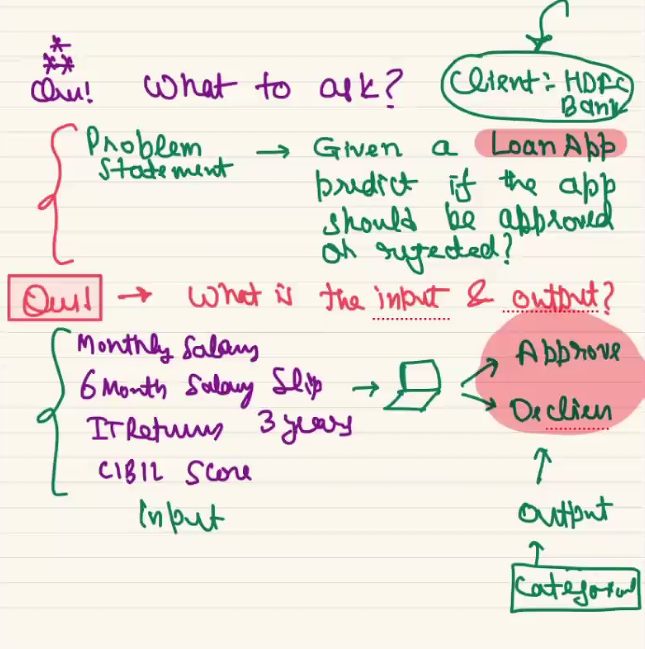 Qu! What to ask?
Client:- HDFC
Bank
Problem
Statement → Given a Loan App
predict if the app
should be approved
or rejected?
Qu! → What is the input & output?
Monthly Salary
6 Month Salary Slip
IT Returns 3 years
CIBIL Score
Input
Approve
Declien
output